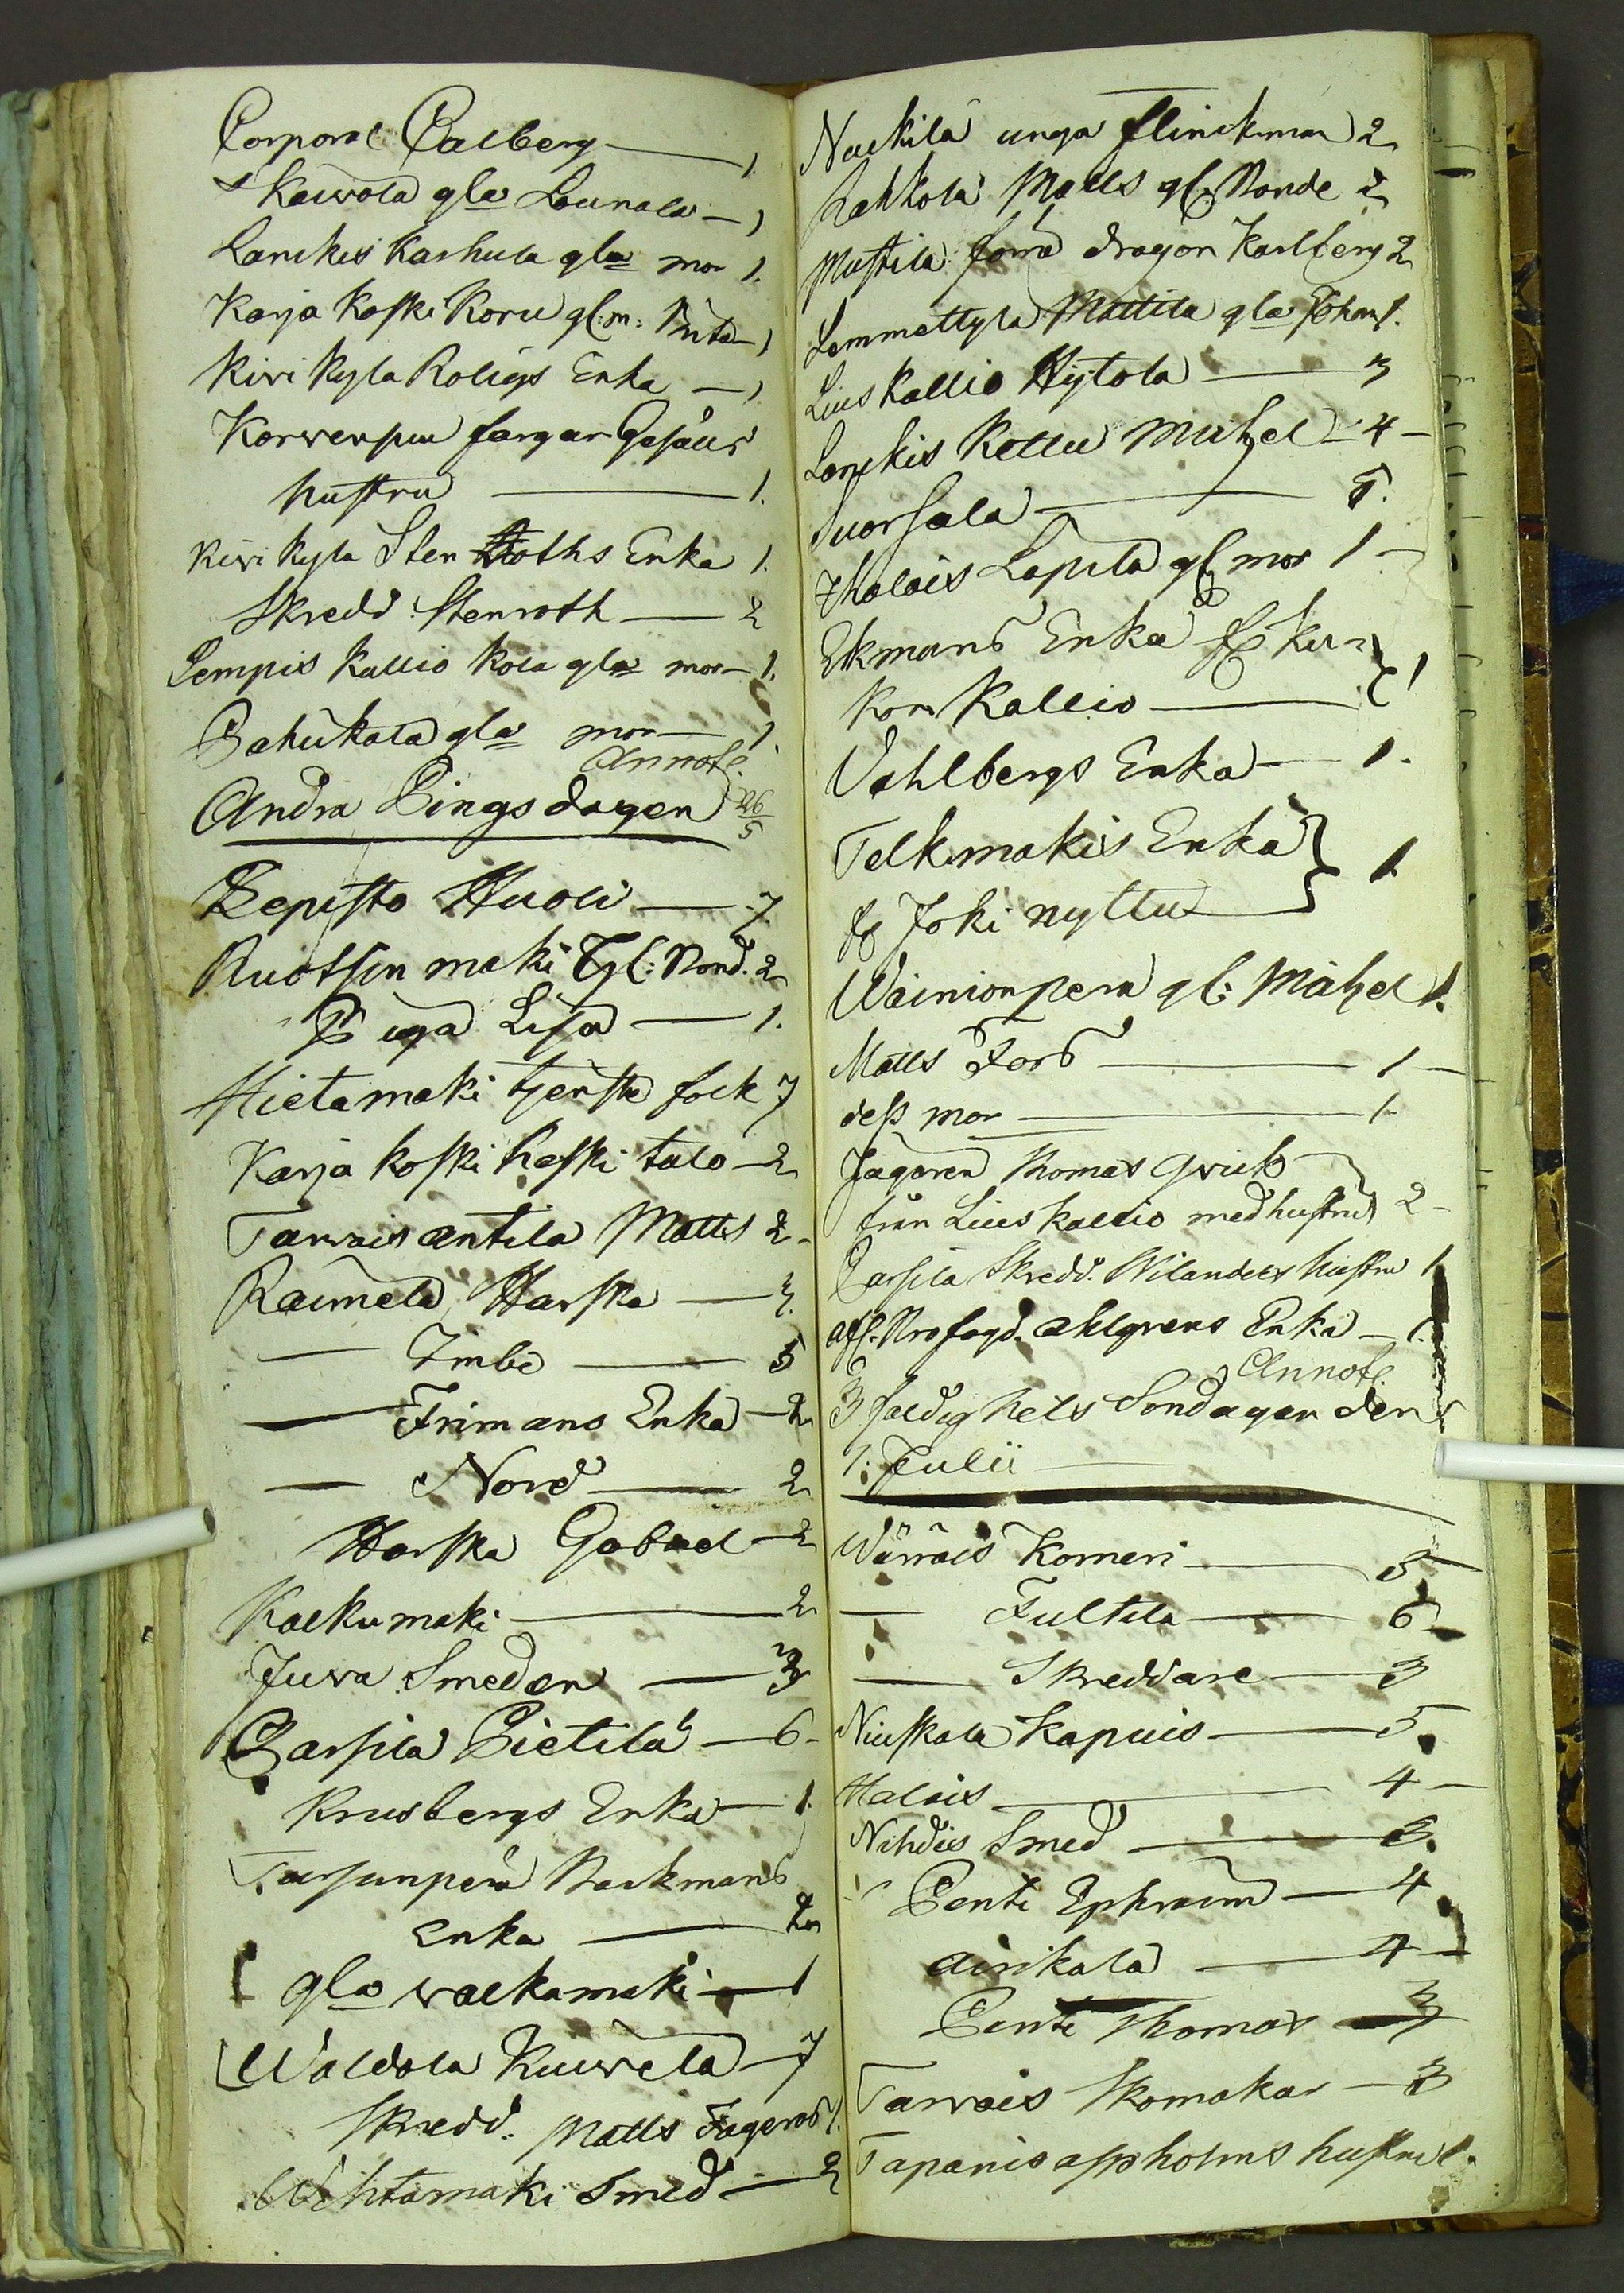 Corporal Calberg — 1.
Kaivola gla Lounala — 1
Lanckis Karhula gla mor 1.
Karja Koski Koru gl: m: Brita — 1
Kivi Kyla Roligs Enka — 1
Korvenpuu fargar Gesälls
hustru — 1.
Kivi Kyla Sten Roths Enka 1.
Skredd. Stenroth — 2
Lempis Kallio Kola gla mor — 1.
Pahukala gla mor — 1
Annot.
Andra Pingsdagen 26/5
Lepisto Huoli — 7
Ruotsin maki gl: Bond. 2
uga Lisa — 1.
Hietamaki tjenste folk 7
Karja koski koski talo — 2
Tarvais antila Matts 2 —
Raimela Harska — 3.
— Imbe — 5
— Frimans Enka — 2
— Nord — 2
Harska Gabriel — 2
Kalkumaki — 2
Juva Smeden — 3
Parsila Pietilä — 6 —
Krusbergs Enka — 1.
Tarsunperä Backmans
Enka — 2
gla valkamaki — 1
Waldola Kuivela — 7
Skredd. Matts Fageroos 1.
Wihtamaki Smed — 2
Nackila unga Flinckman 2
Rahkola Matts gl. Bonde 2
Mustila förra dragon Karlberg 2
Lemmettyla Mattila gla Johan 1.
Lius Kallio Hytola — 3
Lanckis Kettu Michel — 4 —
Suorsala — 5.
Halois Lapila gl mor 1 —
Ekmans Enka fr Kir=
kon Kallio — 1
Vahlbergs Enka — 1.
Telkmakis Enka
fr Joki nyttu } 1
Wäinionpera gl: Michel 1.
Matts Fors — 1 —
dess mor — 1
Jagaren Thomas Qvick
från Lius kallio med hustru 2 —
Parsila Skredd. Wilanders hustru 1
afl. Krofogd. Ahlgrens Enka — 1.
Annot.
3 faldighets Sondagen den
1: Julii
Wärrais Korneri — 3
— Fultila — 6
— Skreddare — 3
Niuskala Kapuis — 5
Halois — 4 —
Nihdis Smed — 3.
Penti Ephraim — 4
Airikala — 4
Penti Thomas — 3
Tarvais Skomakar — 3
Tapanis aspholms hustru 1.